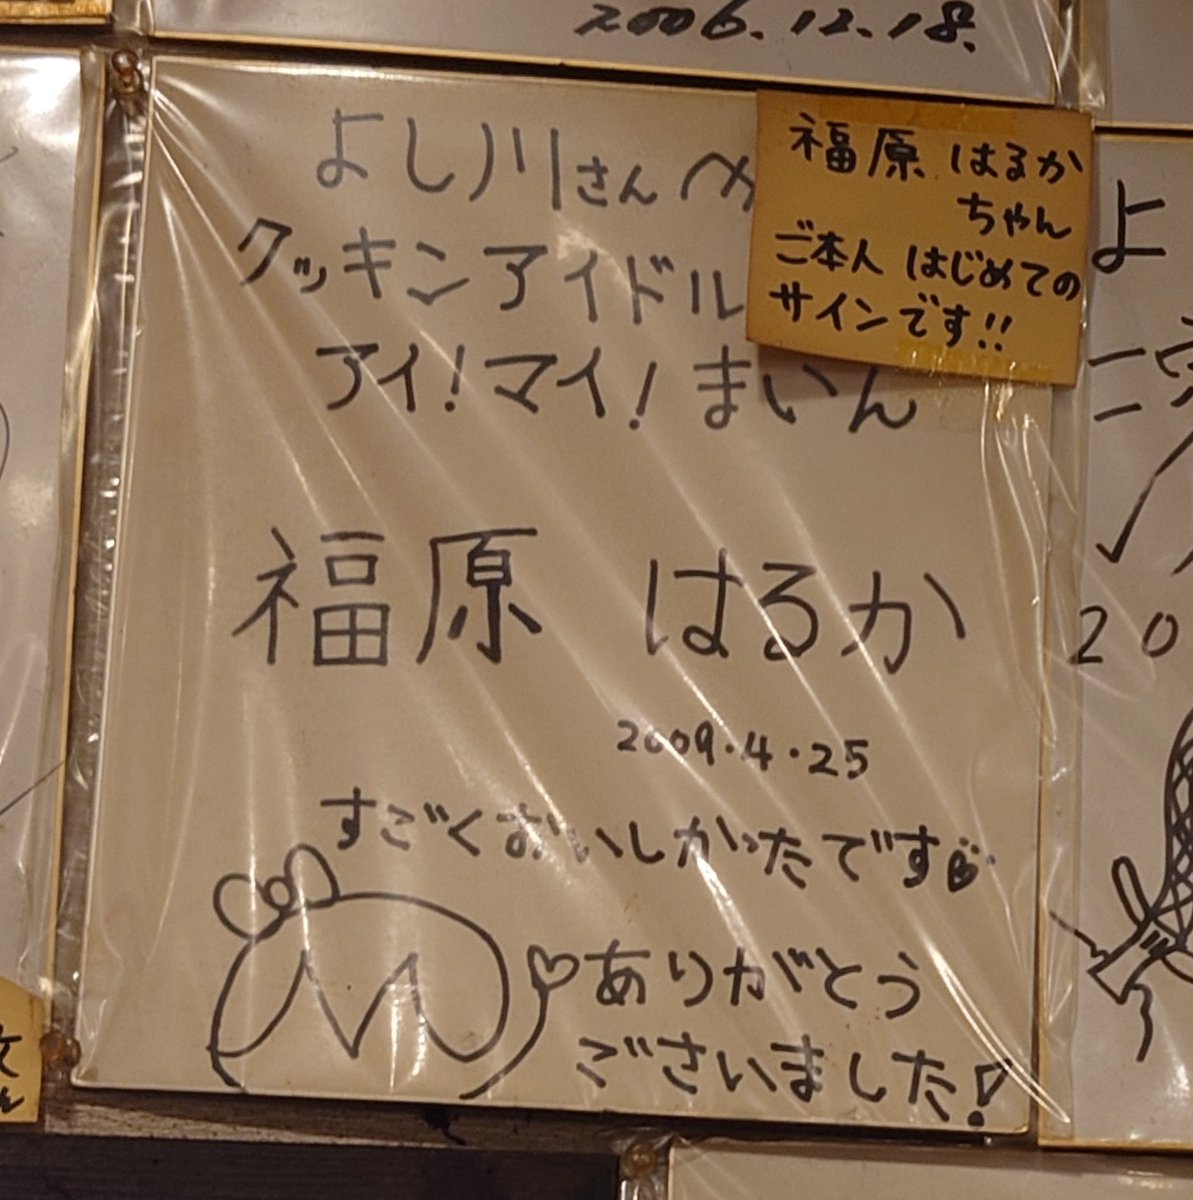 2006.12.18.
よし川さんへ
クッキンアイドル
アイ!マイ!まいん
福原 はるか
ちゃん
ご本人 はじめての
サインです!!
福原 はるか
2009.4.25
すごくおいしかったです
ありがとう
ございました!
よ
20